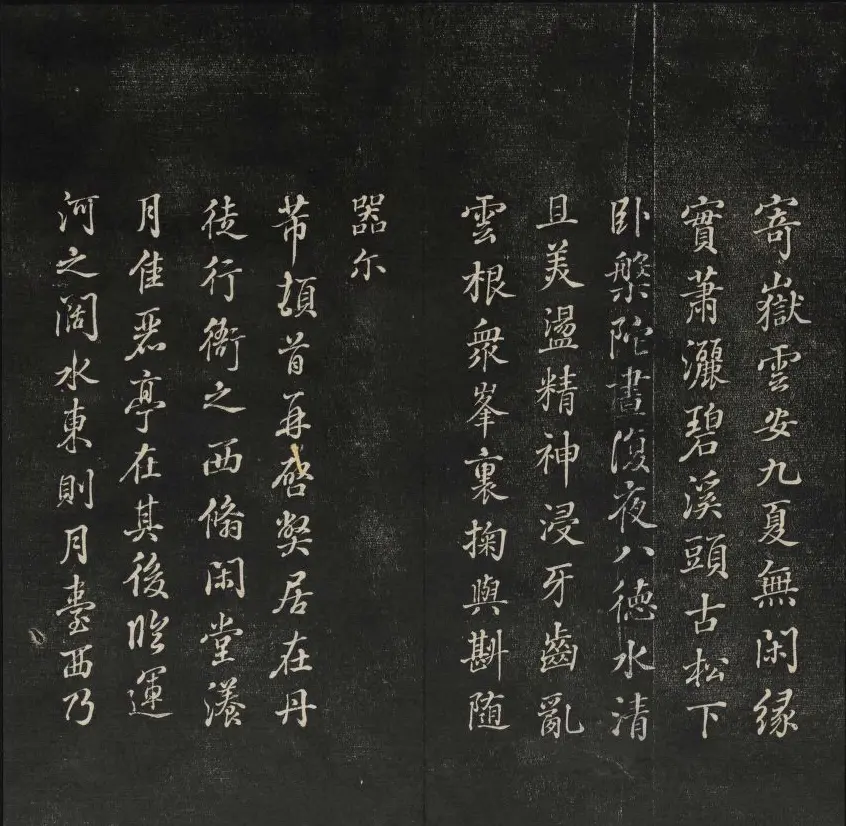 寄嶽雲安九夏無闲緣
實蕭灑碧溪頭古松下
卧槃陀晝復夜八德水清
且美盪精神浸牙齒亂
雲根衆峯裏掬與斟随
器尔
芾頓首再啓弊居在丹
徒行衙之西翛闲堂漾
月佳丽亭在其後臨運
河之闊水東則月臺西乃